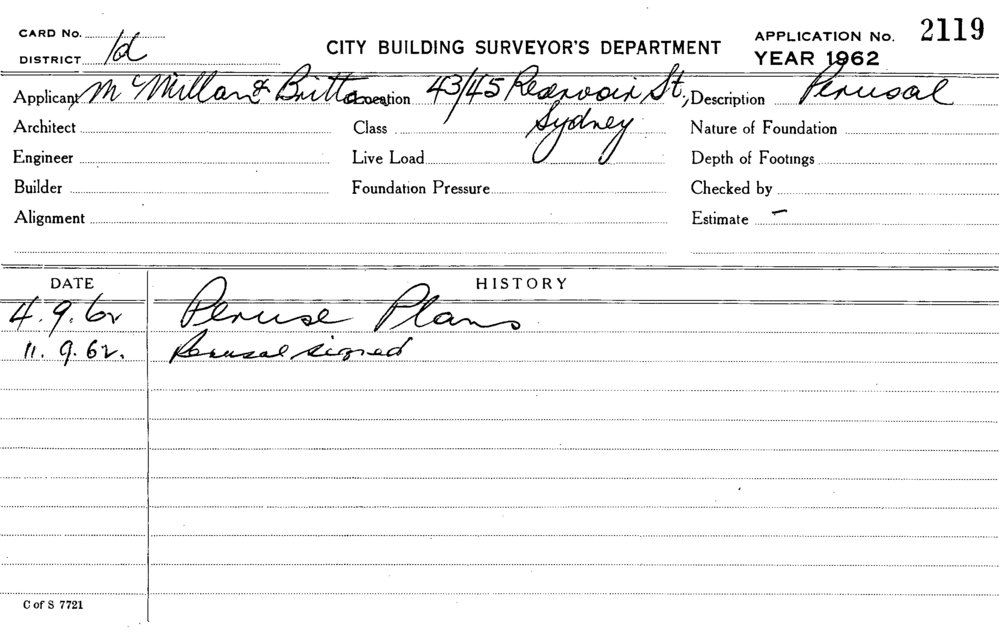 CARD No.
DISTRICT 1d
CITY BUILDING SURVEYOR'S DEPARTMENT
APPLICATION No. 2119
YEAR 1962
Applicant McMillan & Britton Location 43/45 Reservoir St, Sydney Description Perusal
Architect Class Nature of Foundation
Engineer Live Load Depth of Footings
Builder Foundation Pressure Checked by
Alignment Estimate -
DATE HISTORY
4.9.62 Peruse Plans
11.9.62. Perusal signed
C of S 7721